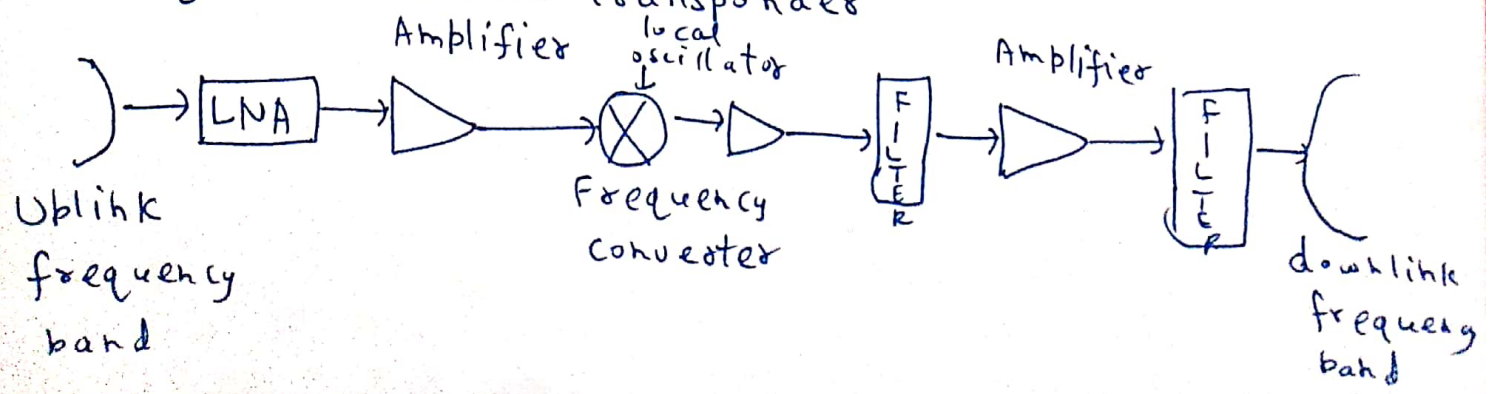 transponder
Amplifier
local
oscillator
Amplifier
LNA
FILTER
FILTER
Uplink
frequency
band
Frequency
converter
downlink
frequency
band